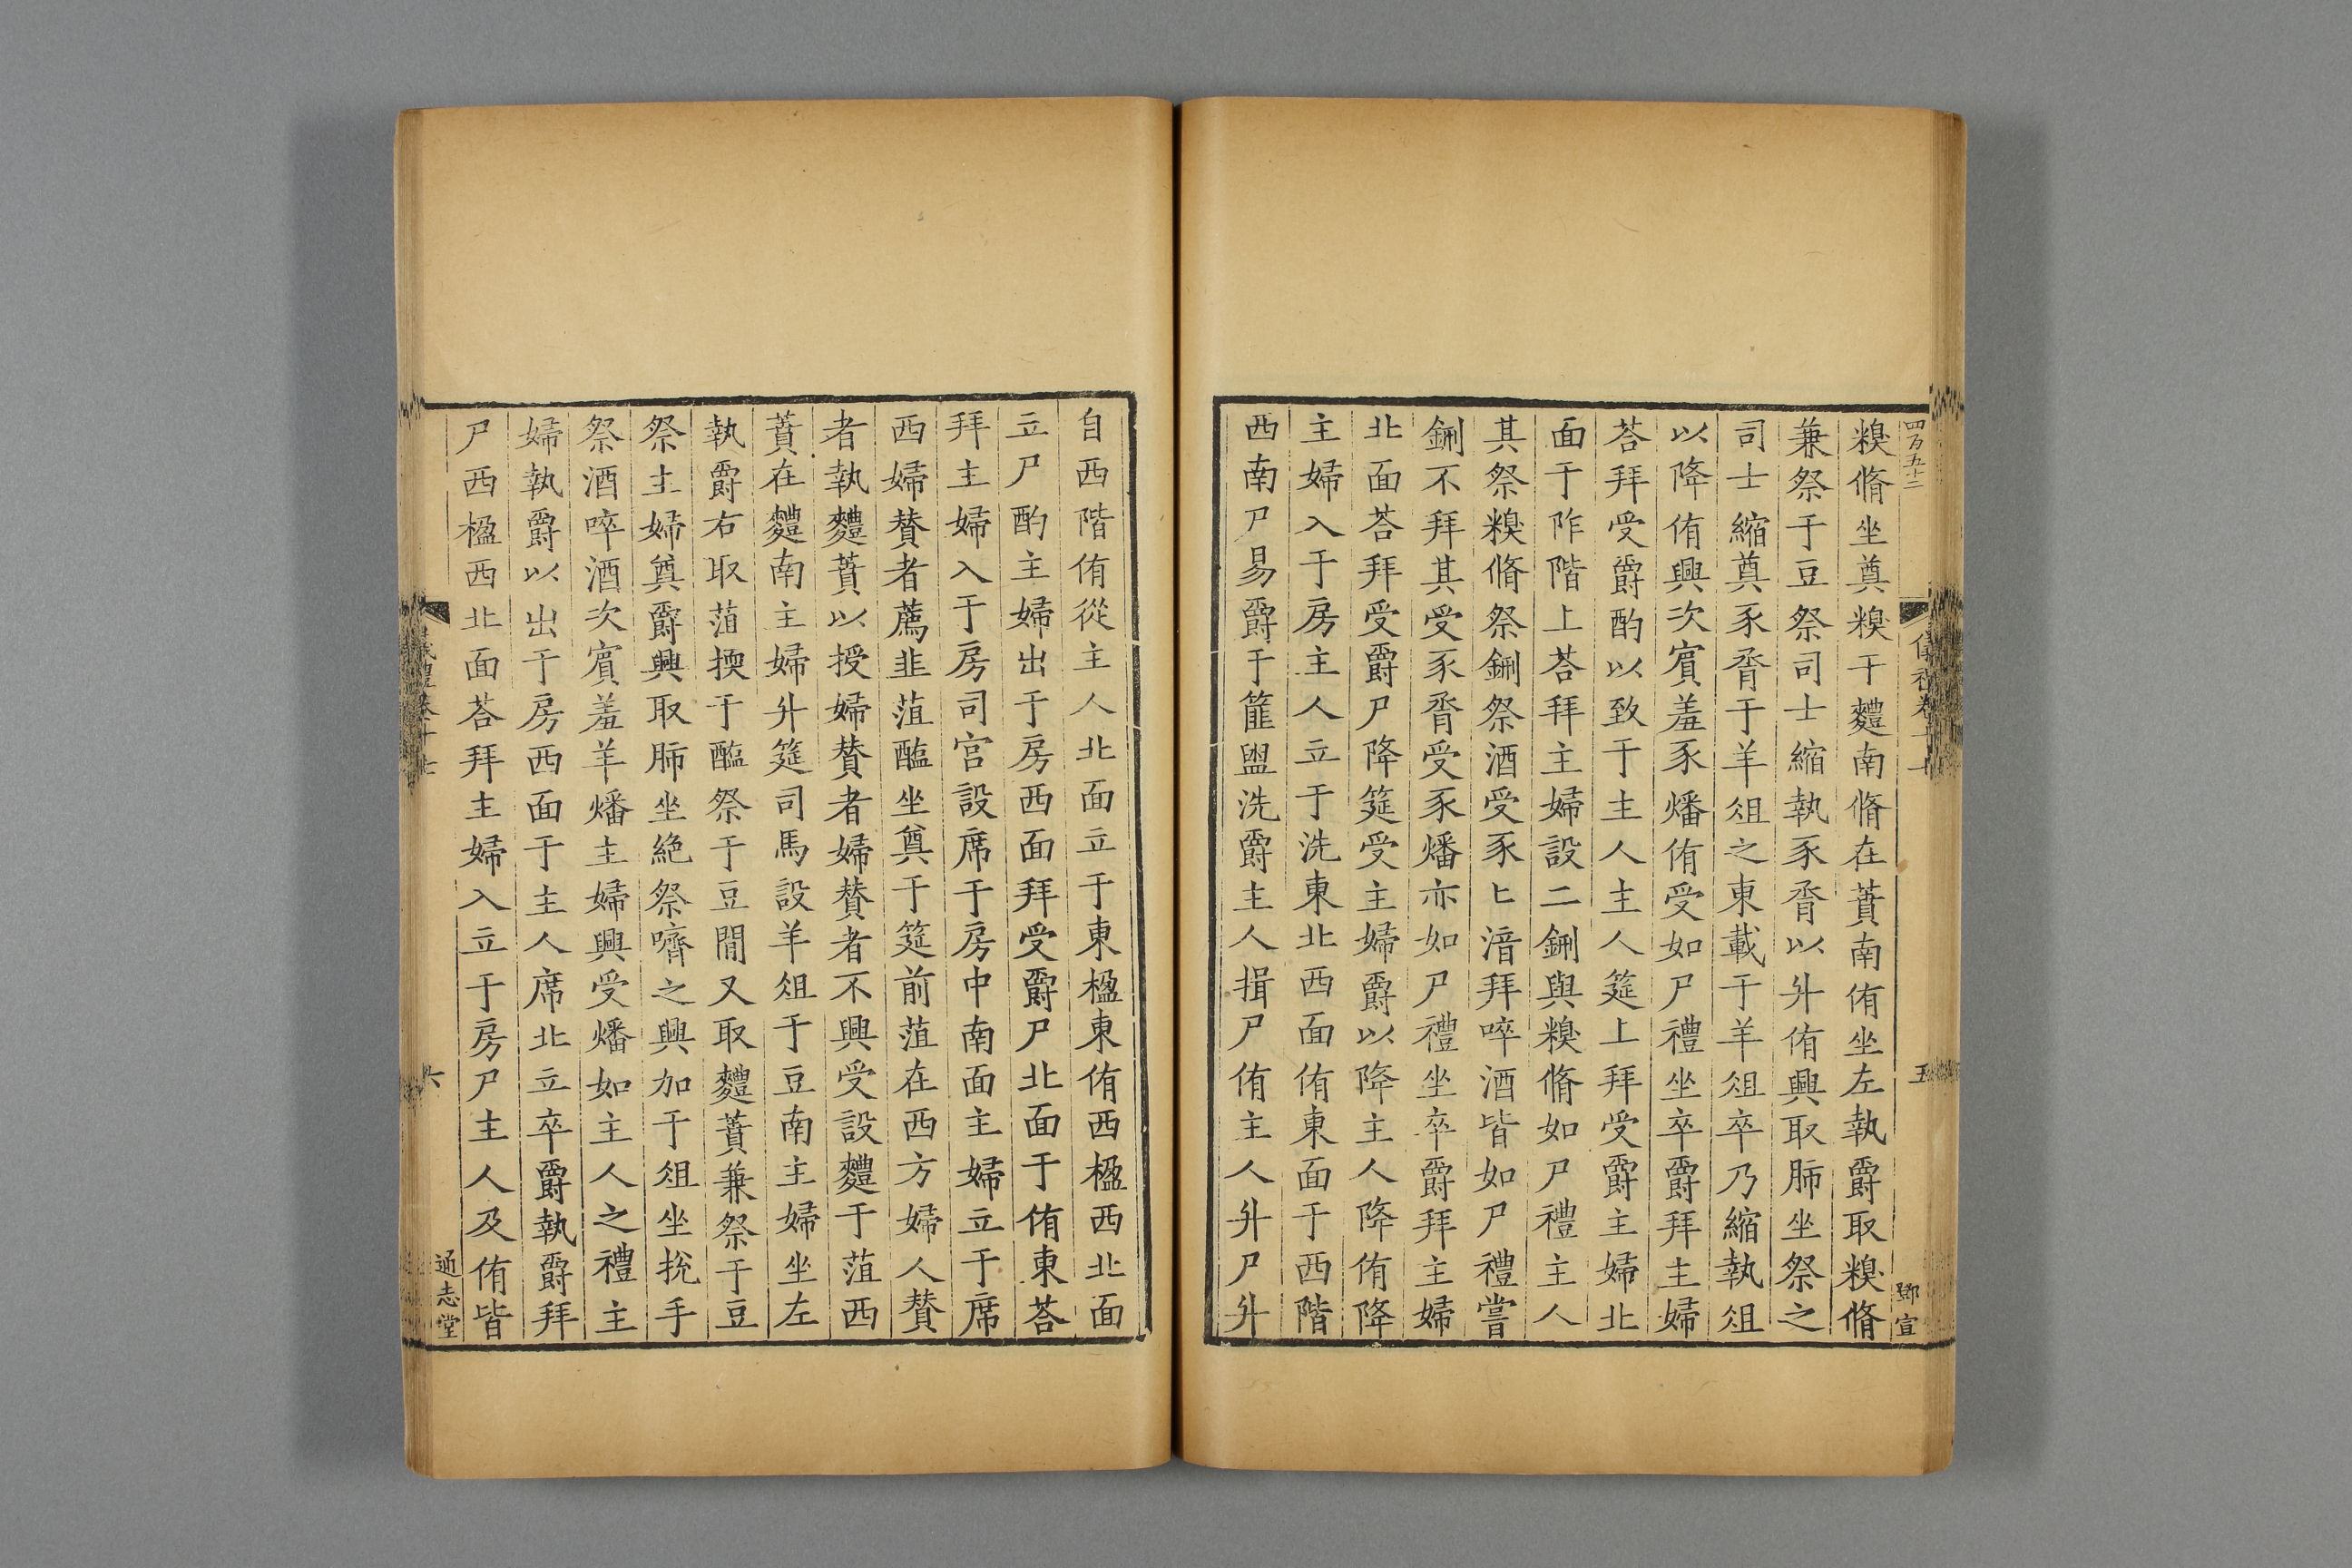 四百五十二
儀禮卷十七
五
鄧宣
糗脩坐奠糗于麷南脩在蕡南侑坐左執爵取糗脩
兼祭于豆祭司士縮執豕脀以升侑興取肺坐祭之
司士縮奠豕脀于羊俎之東載于羊俎卒乃縮執俎
以降侑興次賔羞豕燔侑受如尸禮坐卒爵拜主婦
荅拜受爵酌以致于主人主人筵上拜受爵主婦北
面于阼階上荅拜主婦設二鉶與糗脩如尸禮主人
其祭糗脩祭鉶祭酒受豕匕湆拜啐酒皆如尸禮嘗
鉶不拜其受豕脀受豕燔亦如尸禮坐卒爵拜主婦
北面荅拜受爵尸降筵受主婦爵以降主人降侑降
主婦入于房主人立于洗東北西面侑東面于西階
西南尸易爵于篚盥洗爵主人揖尸侑主人升尸升
自西階侑從主人北面立于東楹東侑西楹西北面
立尸酌主婦出于房西面拜受爵尸北面于侑東荅
拜主婦入于房司宮設席于房中南面主婦立于席
西婦贊者薦韭菹醢坐奠于筵前菹在西方婦人贊
者執麷蕡以授婦贊者婦贊者不興受設麷于菹西
蕡在麷南主婦升筵司馬設羊俎于豆南主婦坐左
執爵右取菹擩于醢祭于豆閒又取麷蕡兼祭于豆
祭主婦奠爵興取肺坐絶祭嚌之興加于俎坐挩手
祭酒啐酒次賔羞羊燔主婦興受燔如主人之禮主
婦執爵以出于房西面于主人席北立卒爵執爵拜
尸西楹西北面荅拜主婦入立于房尸主人及侑皆
儀禮卷十七
六
通志堂